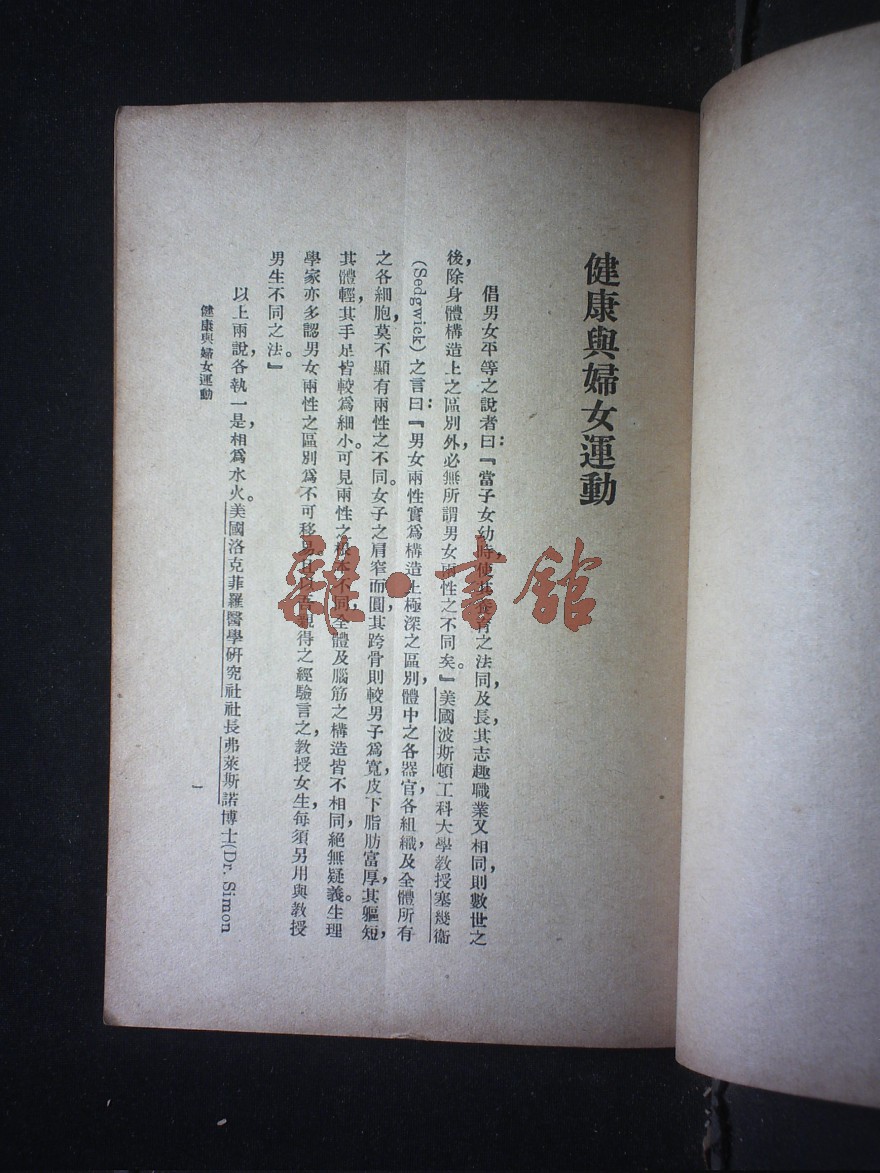 健康與婦女運動
倡男女平等之說者曰：『當子女幼時，使其教育之法同，及長，其志趣職業又相同，則數世之
後，除身體構造上之區別外，必無所謂男女兩性之不同矣。』美國波斯頓工科大學教授塞幾衞
(Sedgwick)之言曰：『男女兩性實爲構造上極深之區別，體中之各器官，各組織，及全體所有
之各細胞，莫不顯有兩性之不同。女子之肩窄而圓，其跨骨則較男子爲寬，皮下脂肪富厚，其軀短，
其體輕，其手足皆較爲細小。可見兩性之根本不同，全體及腦筋之構造皆不相同，絕無疑義。生理
學家亦多認男女兩性之區別爲不可移易。且以吾親得之經驗言之，教授女生，每須另用與教授
男生不同之法。』
以上兩說，各執一是，相爲水火。美國洛克菲羅醫學研究社社長弗萊斯諾博士(Dr. Simon
健康與婦女運動
一
雜·書館